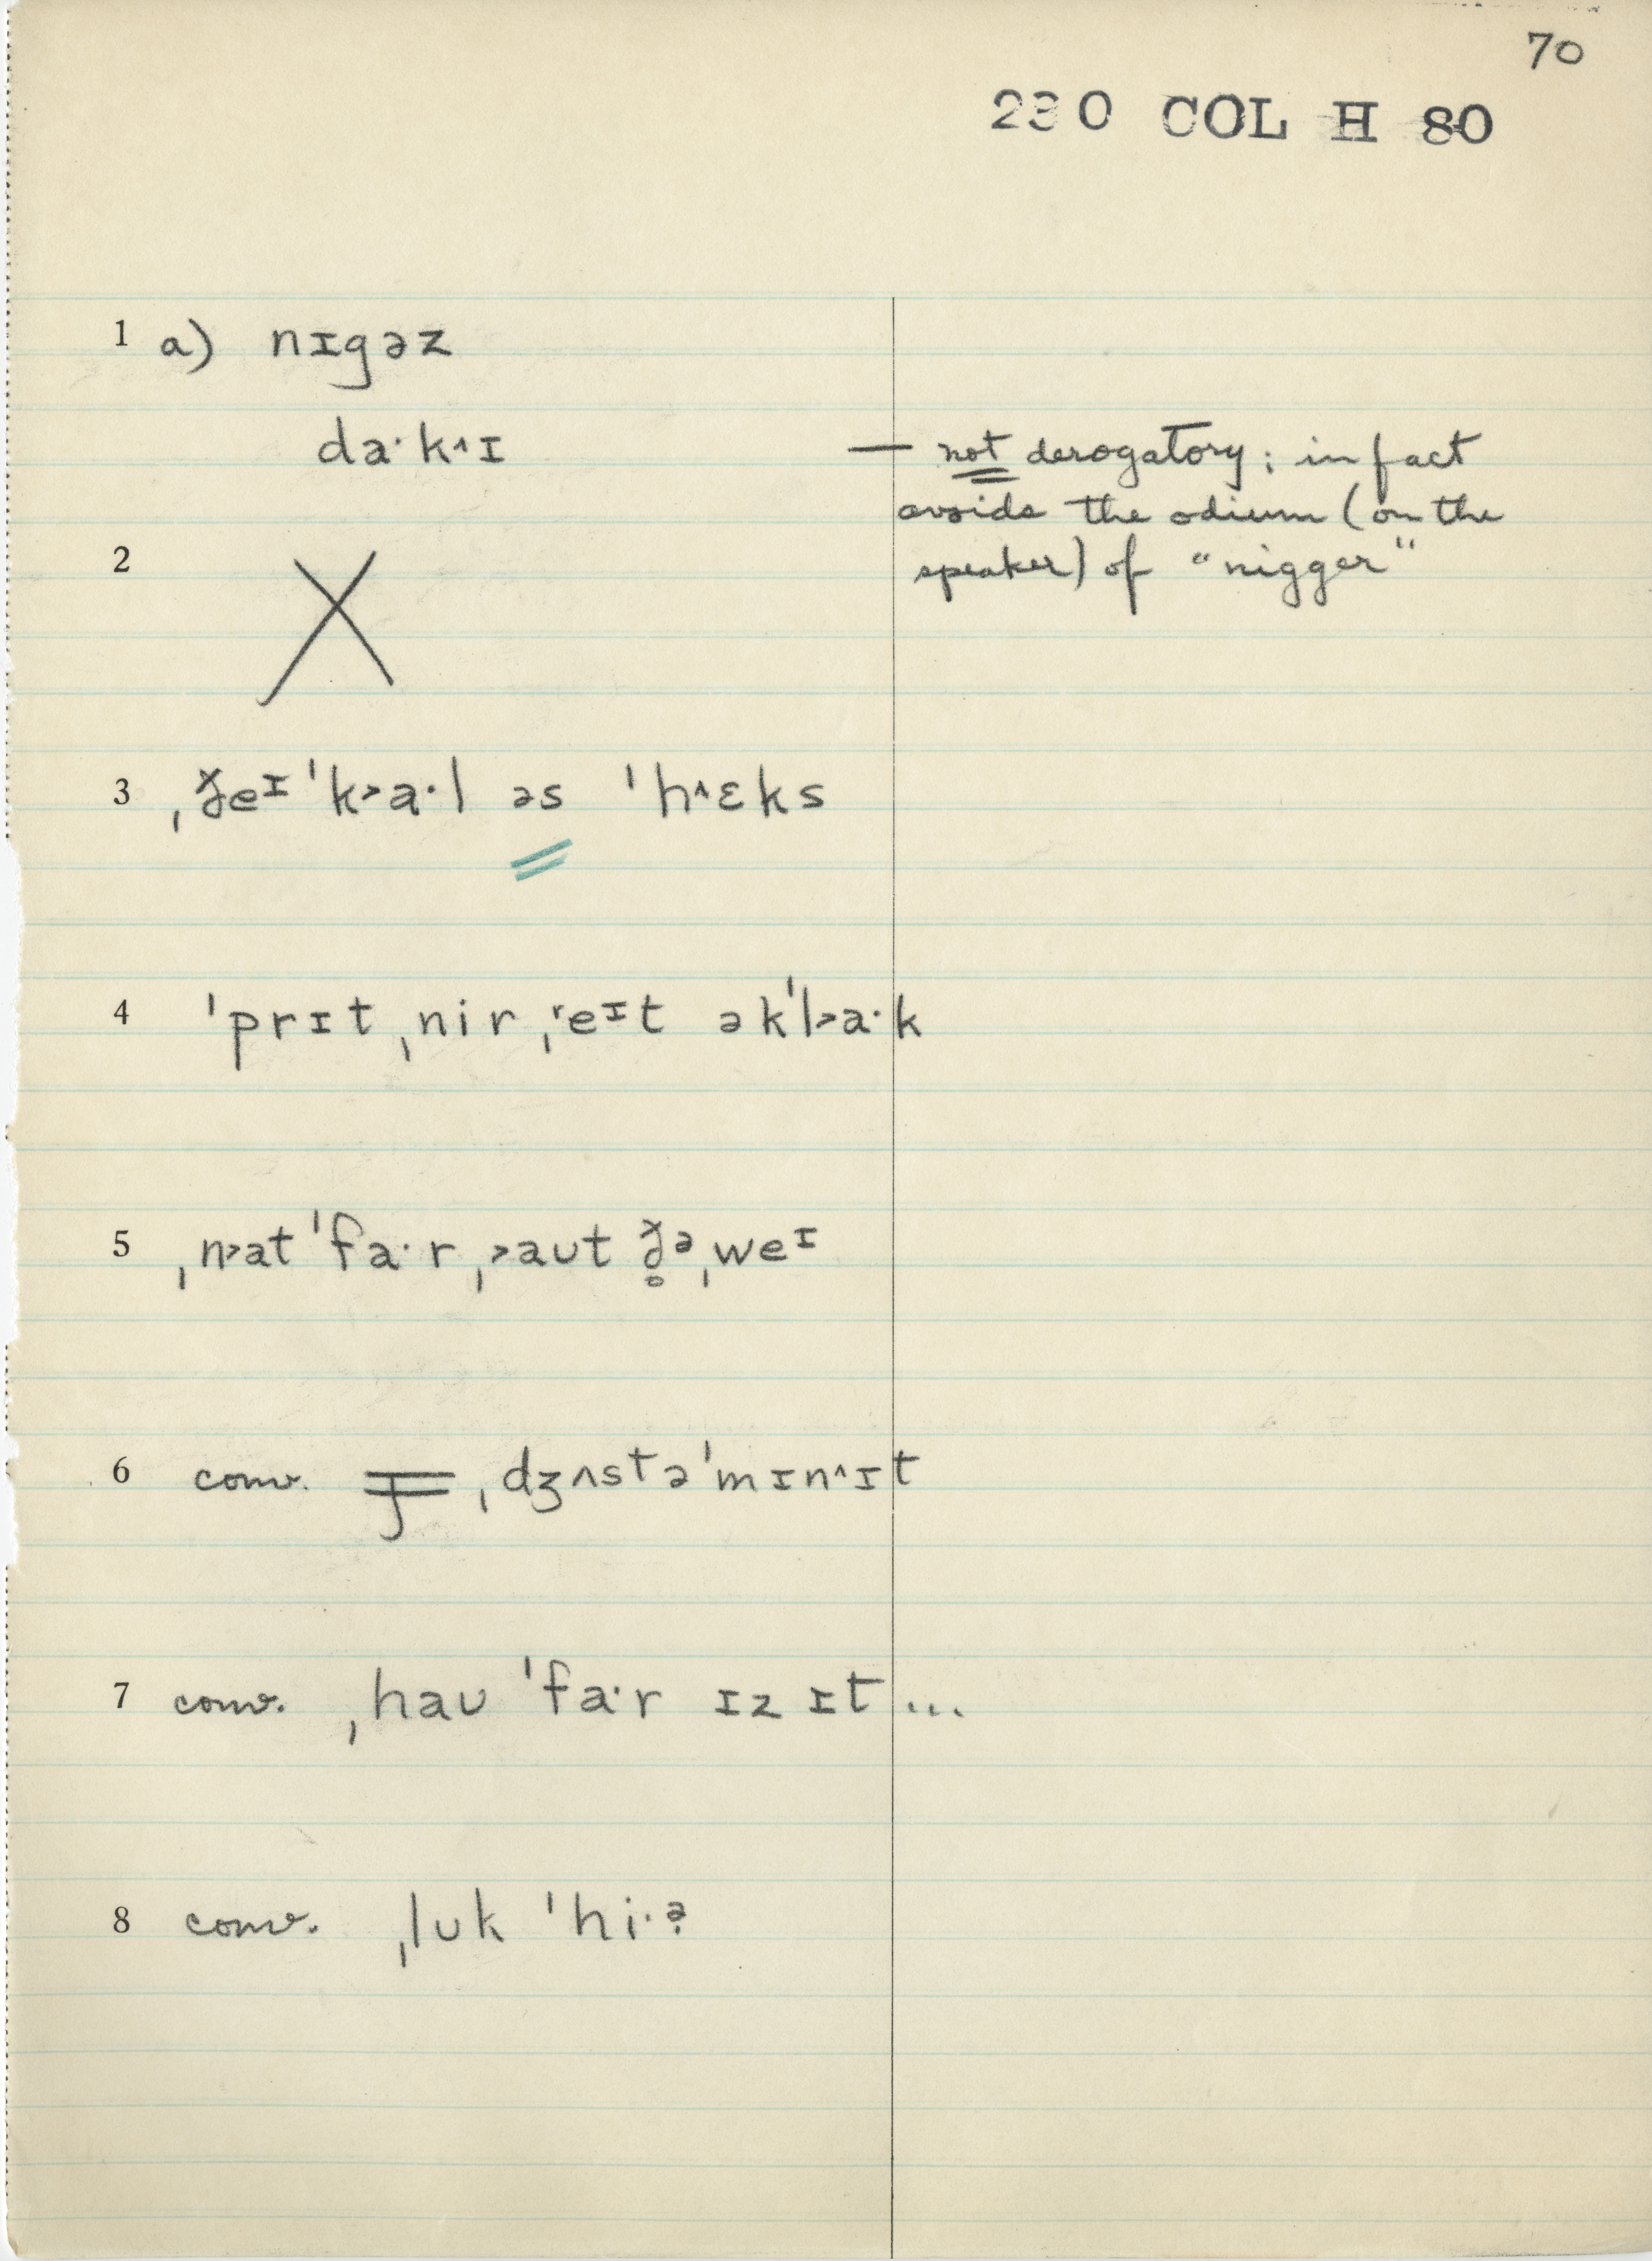 70
230 COL H 80
1 a) nɪgəz
da·k˄ɪ — not derogatory; in fact
avoids the odium (on the
2 speaker) of "nigger"
3 ˌðeɪ ˈk˃a·l əs ˈh˄ɛks
4 ˈprɪt ˌnir ˌeɪt əkˈl˃a·k
5 ˌn˃at ˈfa·r ˌ˃aʊt ð̥əˌweɪ
6 conv. ˌdʒʌstəˈmɪn˄ɪt
7 conv. ˌhaʊ ˈfa·r ɪz ɪt ...
8 conv. ˌlʊk ˈhi·ə̣